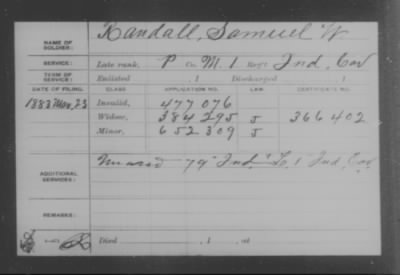 NAME OF SOLDIER: Randall, Samuel W
SERVICE: Late rank, P Co. M, 1 Reg't Ind. Cav
TERM OF SERVICE: Enlisted , 1 Discharged , 1
DATE OF FILING. CLASS. APPLICATION NO. LAW. CERTIFICATE NO.
1883 Nov, 23 Invalid, 477076
Widow, 384295 J 366402
Minor, 652309 J
ADDITIONAL SERVICES: 79" Ind. To 1" Ind. Cav
REMARKS:
Died , 1 , at